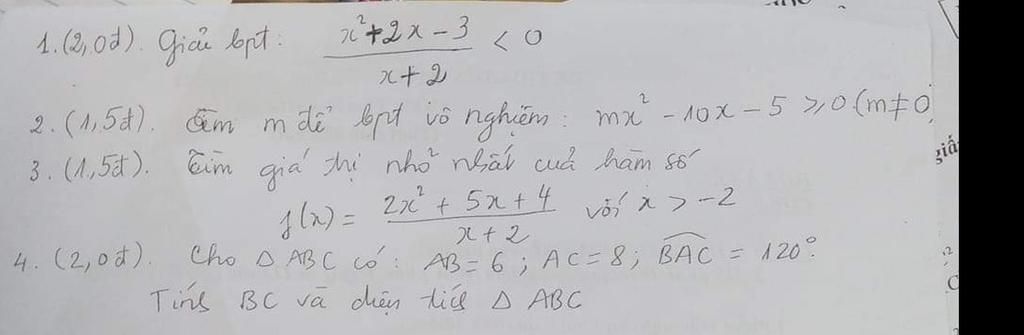 1. (2,0đ). Giải bpt: (x² + 2x - 3)/(x + 2) < 0
2. (1,5đ). Tìm m để bpt vô nghiệm: mx² - 10x - 5 ≥ 0 (m ≠ 0)
3. (1,5đ). Tìm giá trị nhỏ nhất của hàm số
f(x) = (2x² + 5x + 4)/(x + 2) với x > -2
4. (2,0đ). Cho △ ABC có: AB = 6; AC = 8; BAC = 120°.
Tính BC và diện tích △ ABC
giá